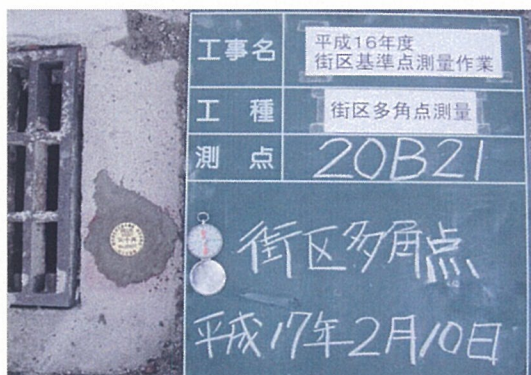 工事名 平成16年度
街区基準点測量作業
工種 街区多角点測量
測点 20B21
街区多角点
平成17年2月10日